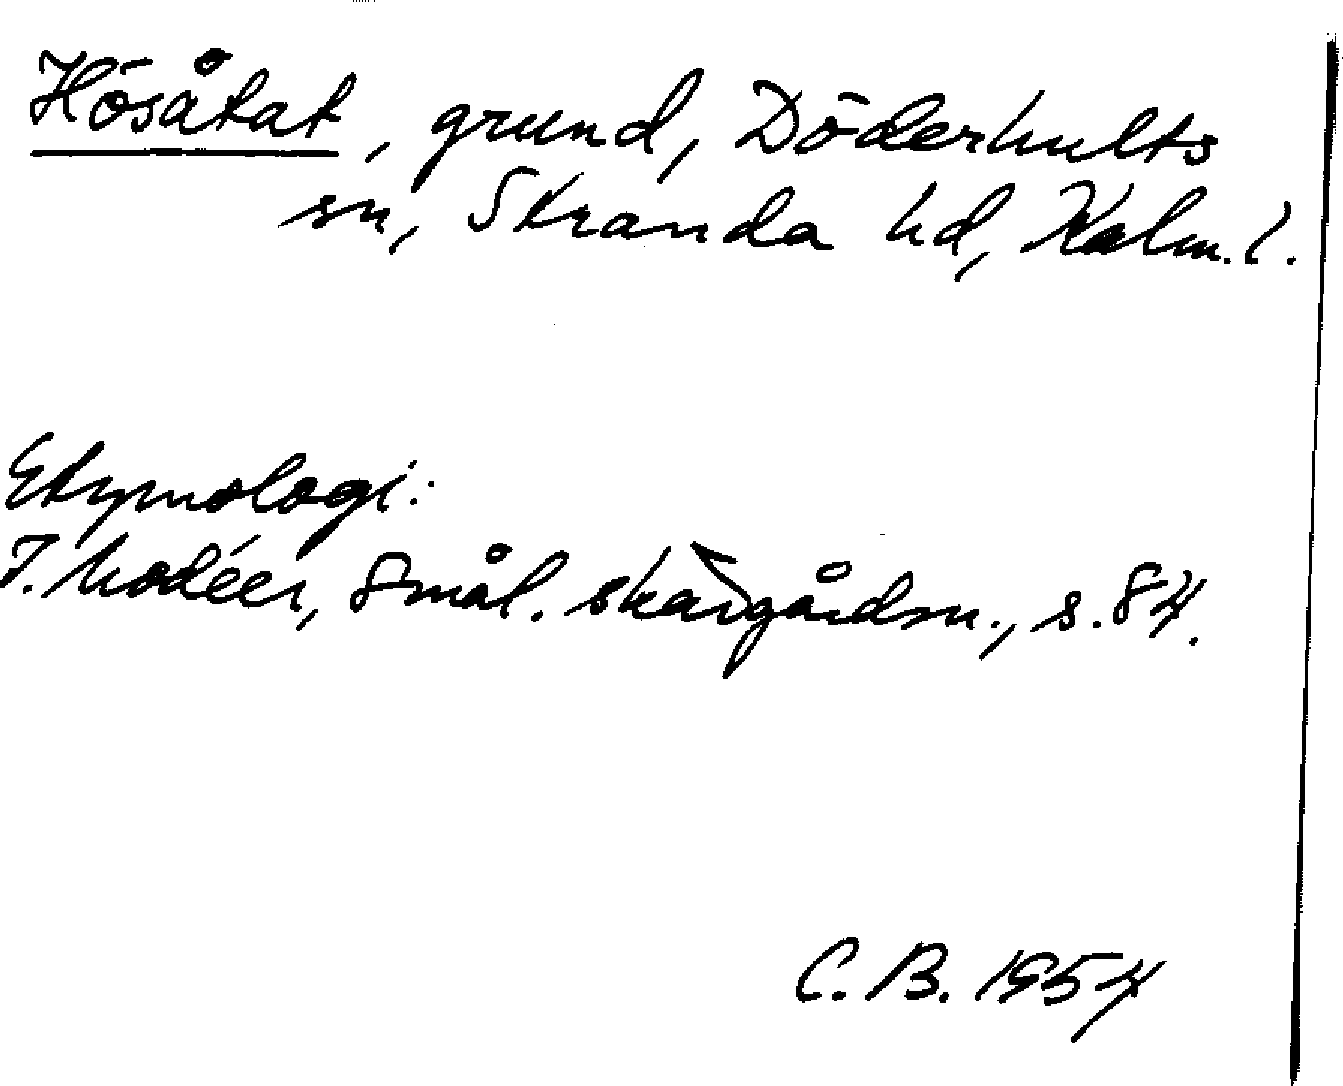 Hösåtat, grund, Döderhults
sn, Stranda hd, Kalm. l.
Etymologi:
I. Modéer, Smål. skärgårdsn., s. 84.
C. B. 1954